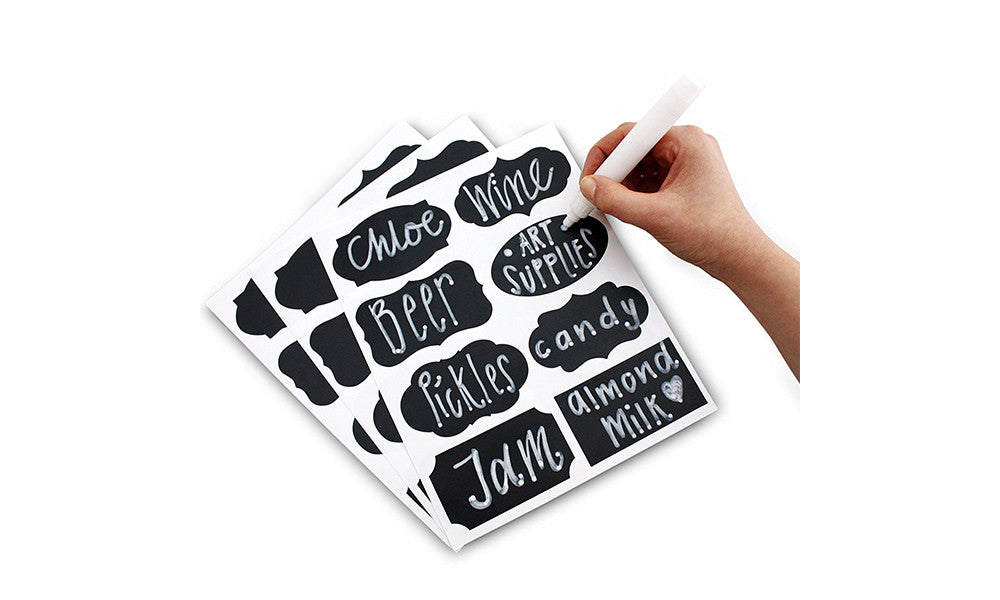 Chloe
Wine
Beer
• ART •
SUPPLIES
Pickles
candy
Jam
almond
Milk ♥